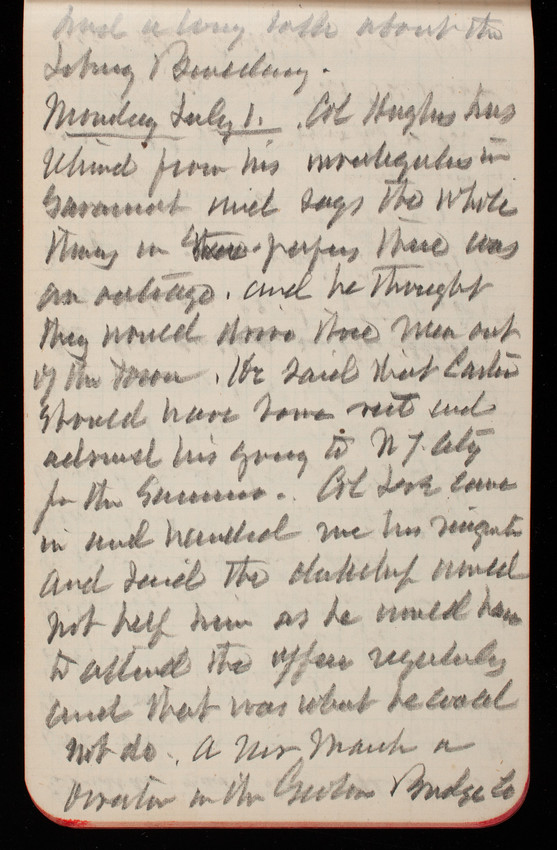 and a long talk about the
Monday July 1. Col Hughes has
from his investigation in
and says the whole
thing in was
an outrage. and he thought
they would drive those men out
of the town. He said that Carter
should have some rest and
advised his going to N Y City
for the Summer. Col came
in and handed me his
and said the clerkship would
not help him as he would have
to attend the office regularly
and that was what he could
not do. A Mr March a
Director in the Bridge Co